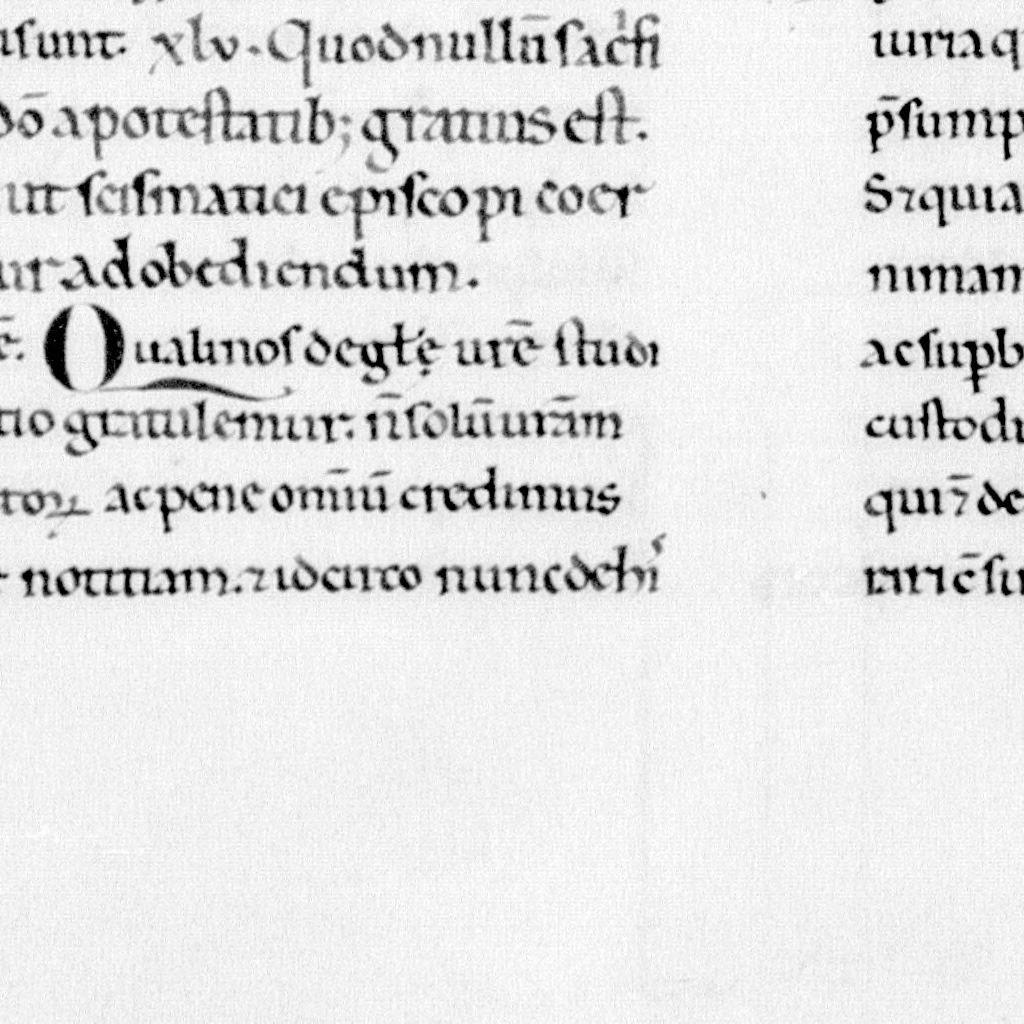 usunt. xlv. Quod nullū sacⁱfi
dō a potestatib; gratius est.
ut scismatici episcopi coer
ur ad obediendum.
ē. Qualinos de głę urē studi
tio gratulemur. n̄ solū urām
toꝝ ac pene om̄iū credimus
notitiam. ⁊ idcirco nunc de hiˢ
iuria q
p̄sump
S⁊ quia
nimam
ac suꝑb
custodi
qui ⁊̄ de